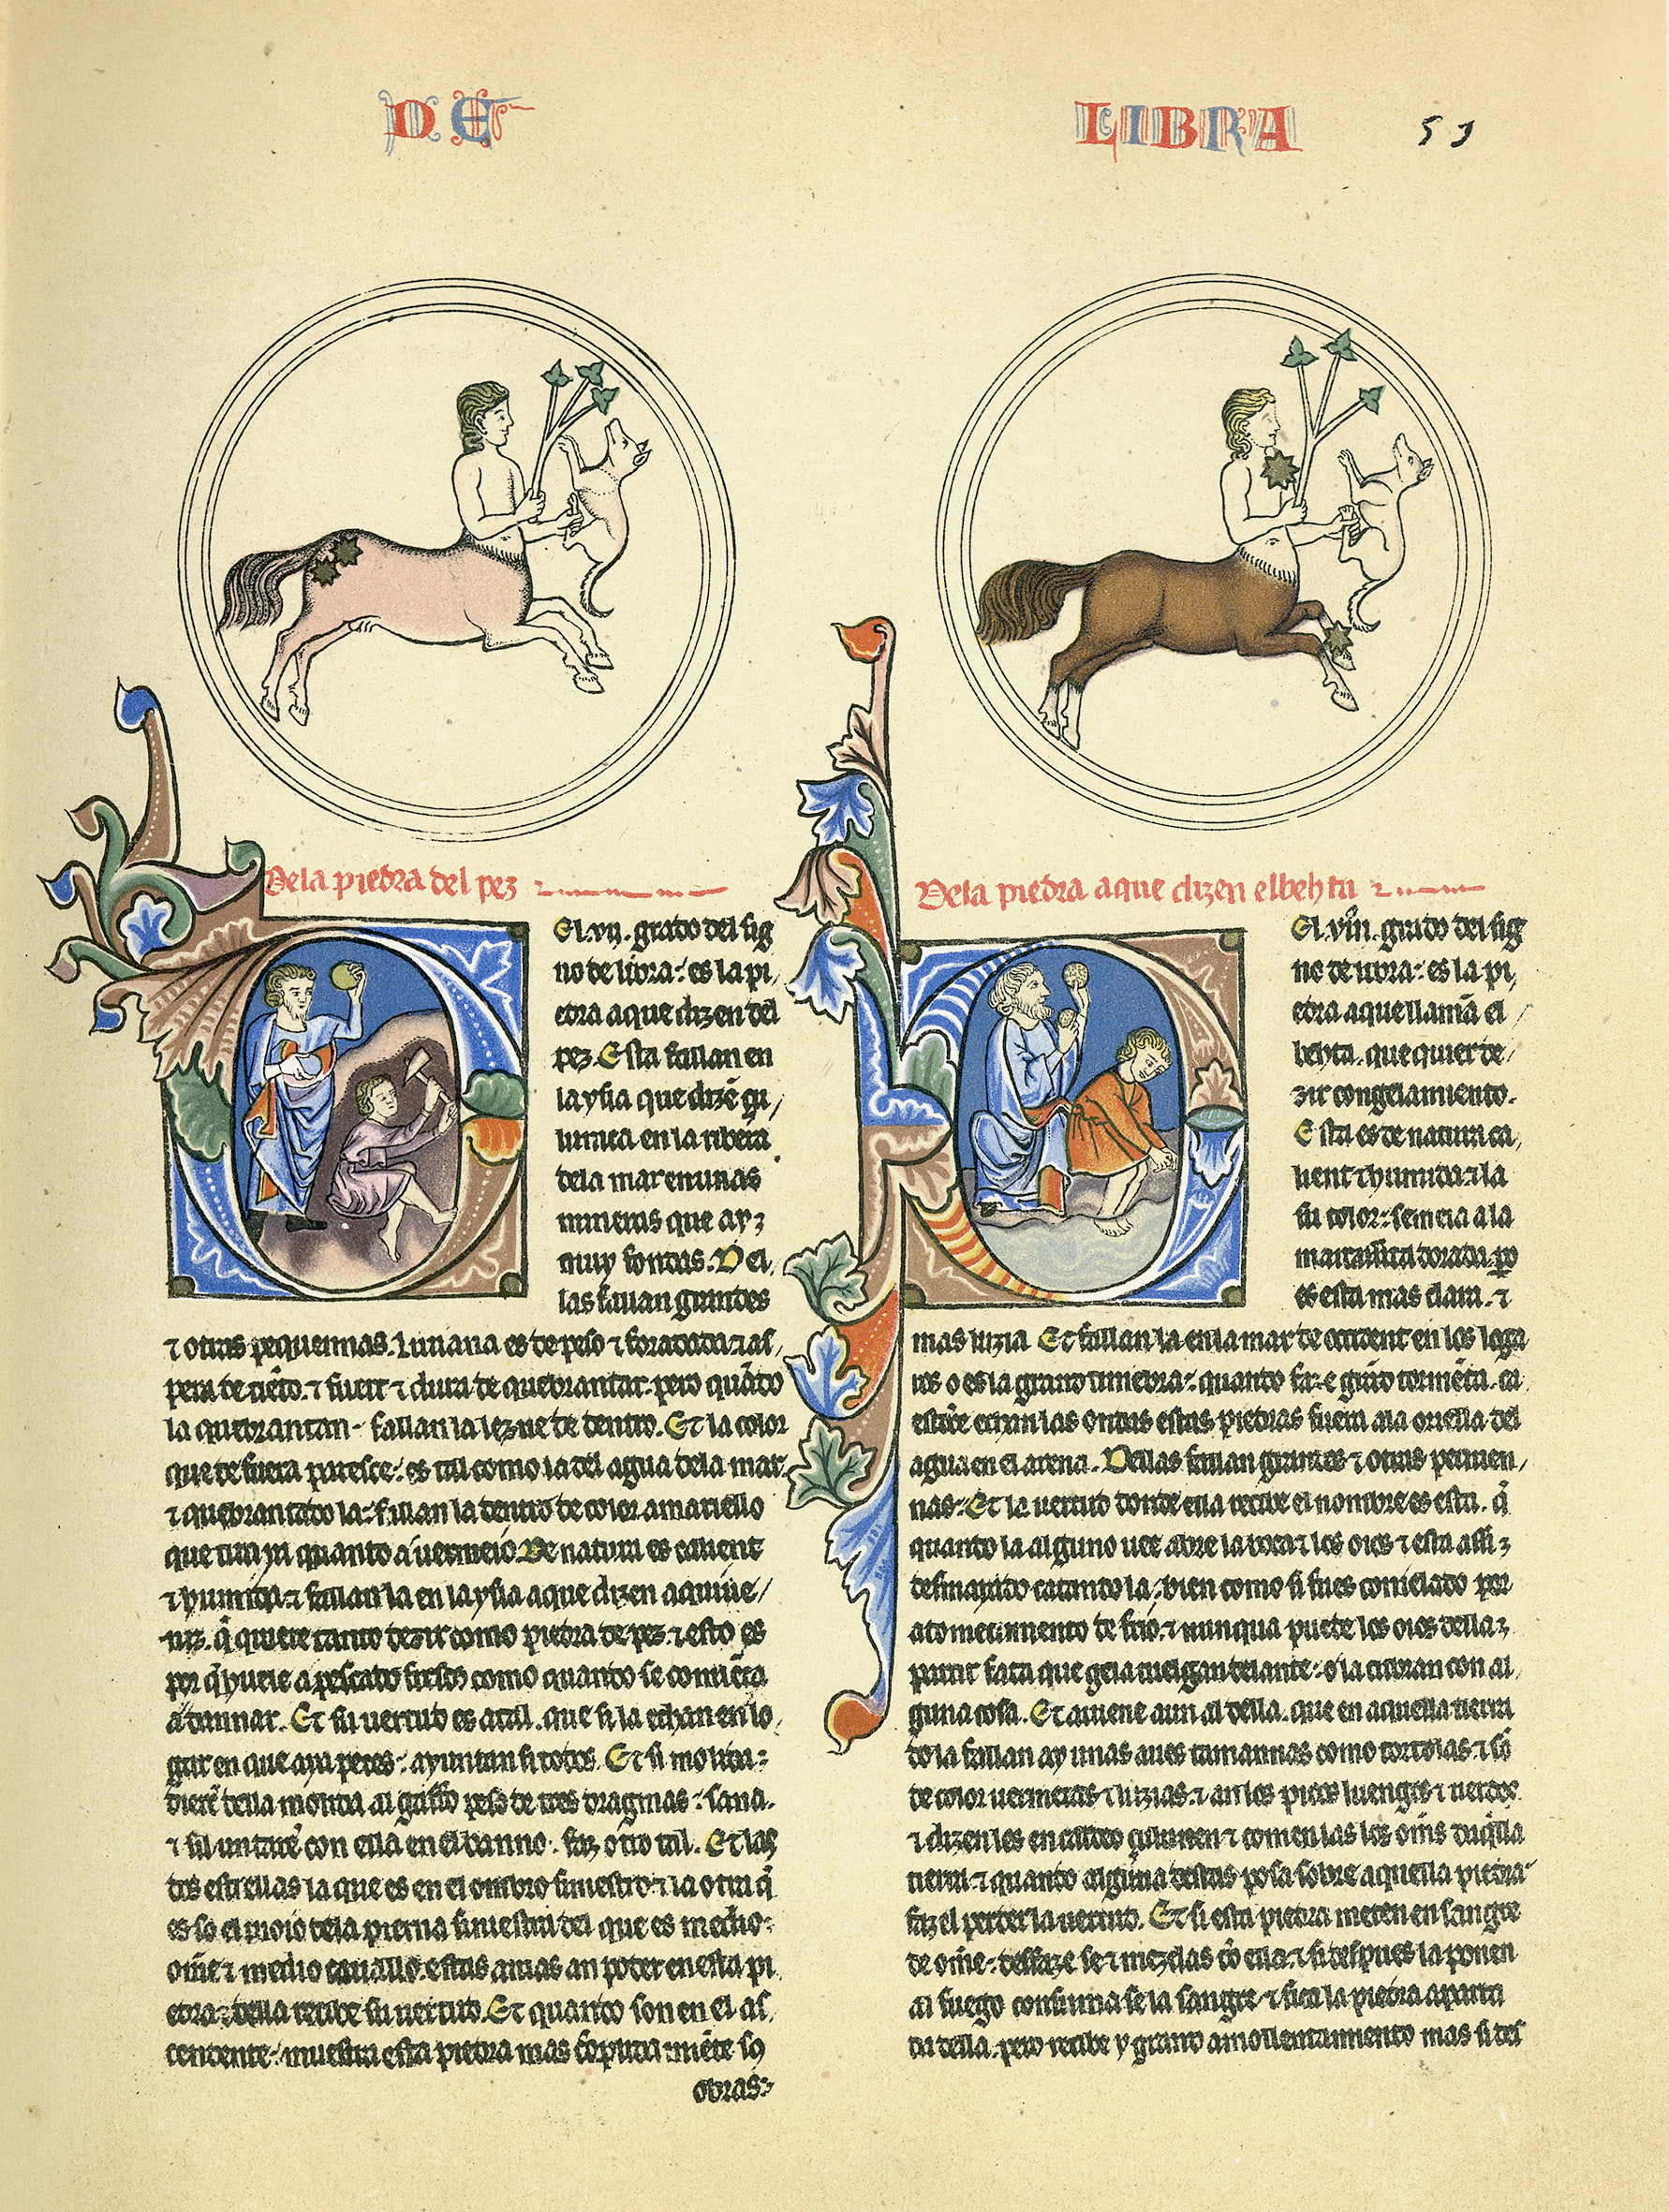 DE LIBRA 53
De la piedra del pez
El .vii. grado del sig
no de libra: es la pi
edra a que dizen del
pez. Esta fallan en
la ysla que dizē
en la ribera
de la mar en unas
mineras que ay
muy fondas. Del
las fallan grandes
⁊ otras pequennas. Liuiana es de peso ⁊ foradada ⁊ as
pera de tiēto. ⁊ fuert ⁊ dura de quebrantar. pero quādo
la quebrantan fallan la lezne de dentro. Et la color
que de fuera paresce: es tal como la del agua de la mar
⁊ quebrantado la: fallan la dentro de color amariello
que tira ya quanto a uermeio. De natura es calient
⁊ humida. ⁊ fallan la en la ysla a que dizen
q̄ quiere tanto dezir como piedra de pez. ⁊ esto es
por q̄ huele a pescado fresco como quando se comiēça
a dannar. Et su uertud es atal. que si la echan en lo
gar en que aya peces: ayuntan si todos. Et si molida:
dierē della a moller al gafo peso de tres dragmas: sana.
⁊ sil untarē con ella en el banno: faz otro tal. Et las
dos estrellas la que es en el ombro siniestro ⁊ la otra q̄
es so el moio de la pierna siniestra del que es medio
om̄e ⁊ medio cauallo. estas amas an poder en esta pi
edra: ⁊ della recibe su uertud. Et quando son en el as
cendente: muestra esta piedra mas cōplida miētre so
obras
De la piedra a que dizen el behta
El .viii. grado del sig
no de libra: es la pi
edra a que llamā el
behta. que quier de
zir congelamiento.
Esta es de natura ca
lient ⁊ humida. ⁊ la
su color: semeia a la
marcasita dorada. po
es esta mas clara. ⁊
mas luzia. Et fallan la en la mar de occident en los loga
res o es la grand tiniebra: quando faze grād tormēta. ca
estōce echan las ondas estas piedras fuera a la oriella del
agua en el arena. Dellas fallan grandes ⁊ otras pequen
nas. Et la uertud donde ella recibe el nombre es esta. q̄
quando la alguno uee abre la boca ⁊ los oios ⁊ esta assi
desmayado catando la: bien como si fues conielado por
acometimiento de frio. ⁊ nunqua puede los oios della
partir fata que gela tuelgan delante: o la cubran con al
guna cosa. Et auiene aun al della. que en aquella tierra
do la fallan ay unas aues tamannas como tortolas. ⁊ sō
de color uermeias ⁊ luzias. ⁊ an los picos luengos ⁊ uerdes
⁊ dizen les en caldeo ⁊ comen las los om̄s daq̄lla
tierra. ⁊ quando alguna destas posa sobre aquella piedra
faz el perder la uertud. Et si esta piedra meten en sangre
de om̄e: desfaze se ⁊ mezclas cō ella. ⁊ si despues la ponen
al fuego consuma se la sangre ⁊ finca la piedra aparta
da della. pero recibe y grand amollentamiento mas si des